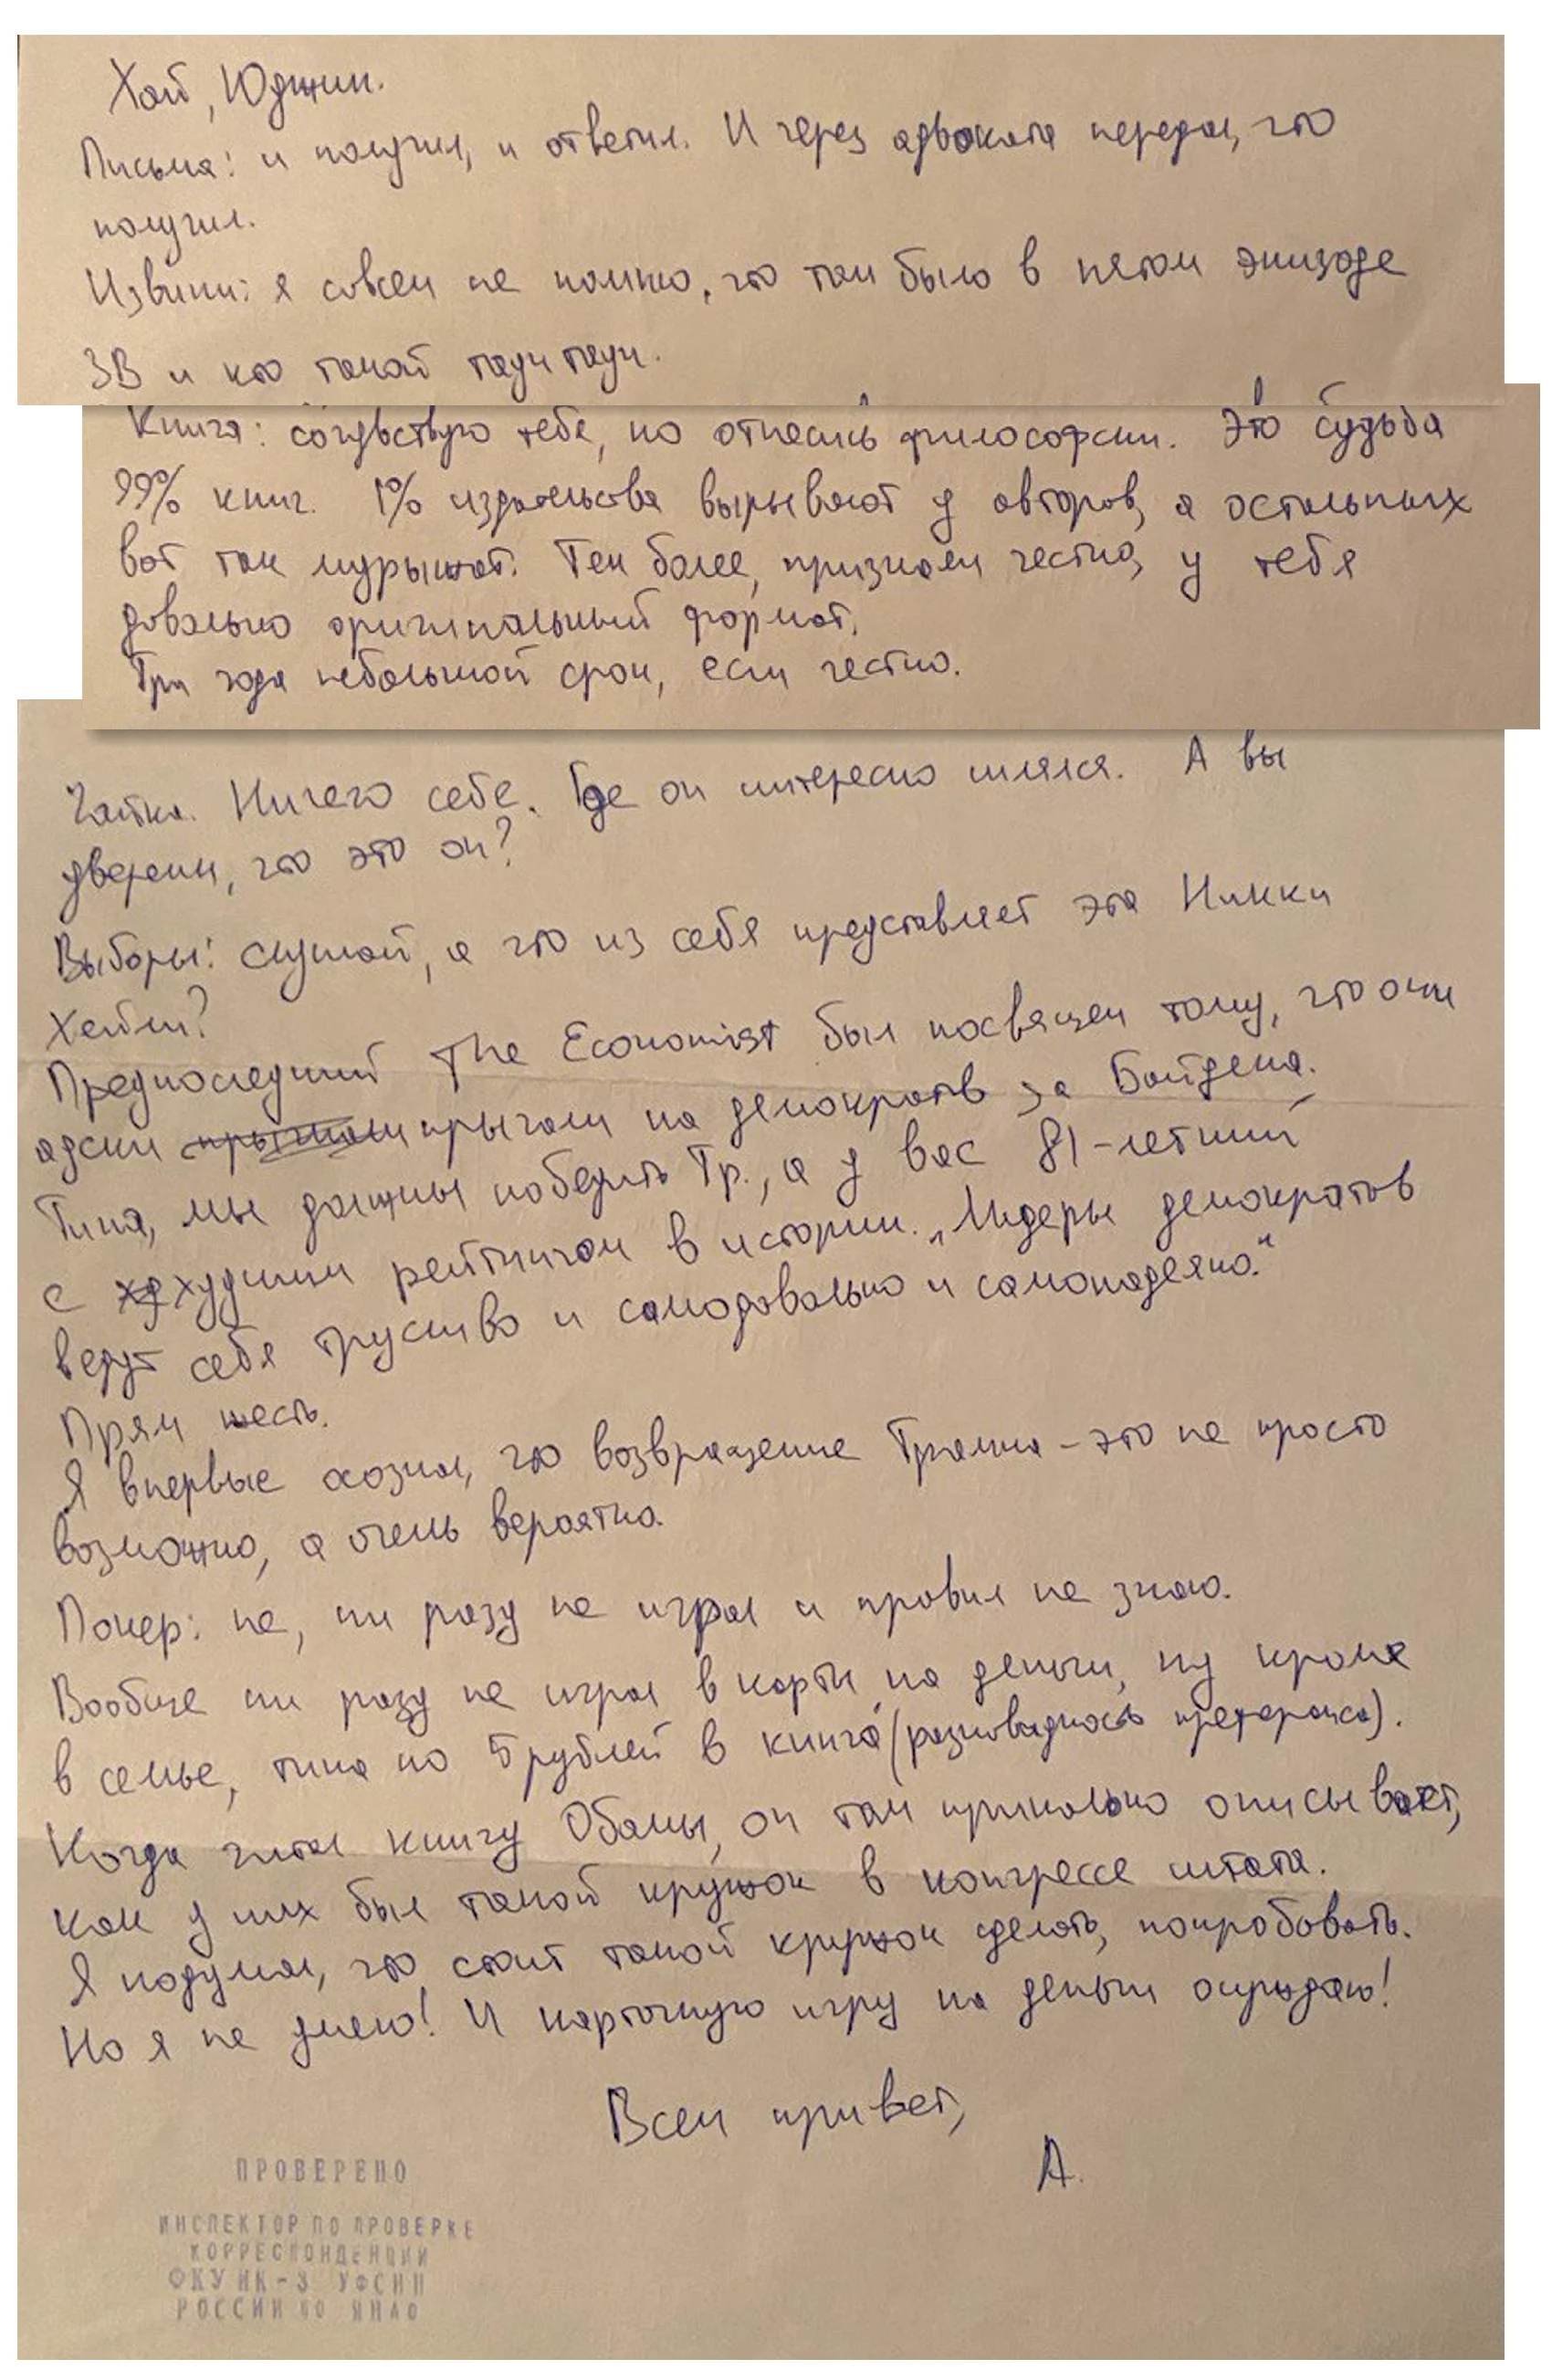 Хай, Юджин.
Письма: и получил, и ответил. И через адвоката передал, что
получил.
Извини: я совсем не помню, что там было в пятом эпизоде
ЗВ и кто такой таунтаун.
Книга: сочувствую тебе, но отнесись философски. Это судьба
99% книг. 1% издательства вырывают у авторов, а остальных
вот так мурыжат. Тем более, признаем честно, у тебя
довольно оригинальный формат.
Три года небольшой срок, если честно.
Ничего себе. Где он интересно шлялся. А вы
уверены, что это он?
Выборы: слушай, а что из себя представляет эта Никки
Хейли?
Предпоследний The Economist был посвящен тому, что они
адски прыгали на демократов за Байдена.
Типа, мы должны победить Тр., а у вас 81-летний
с худшим рейтингом в истории. „Лидеры демократов
ведут себя трусливо и самодовольно и самонадеяно."
Прям жесть.
Я впервые осознал, что возвращение Трампа – это не просто
возможно, а очень вероятно.
Покер: не, ни разу не играл и правил не знаю.
Вообще ни разу не играл в карты на деньги, ну кроме
в семье, типа по 5 рублей в кинга (разновидность преферанса).
Когда читал книгу Обамы, он там прикольно описывает,
как у них был такой кружок в конгрессе штата.
Я подумал, что стоит такой кружок сделать, попробовать.
Но я не умею! И карточную игру на деньги осуждаю!
Всем привет,
А.
ПРОВЕРЕНО
ИНСПЕКТОР ПО ПРОВЕРКЕ
КОРРЕСПОНДЕНЦИИ
ФКУ ИК-3 УФСИН
РОССИИ ПО ЯНАО